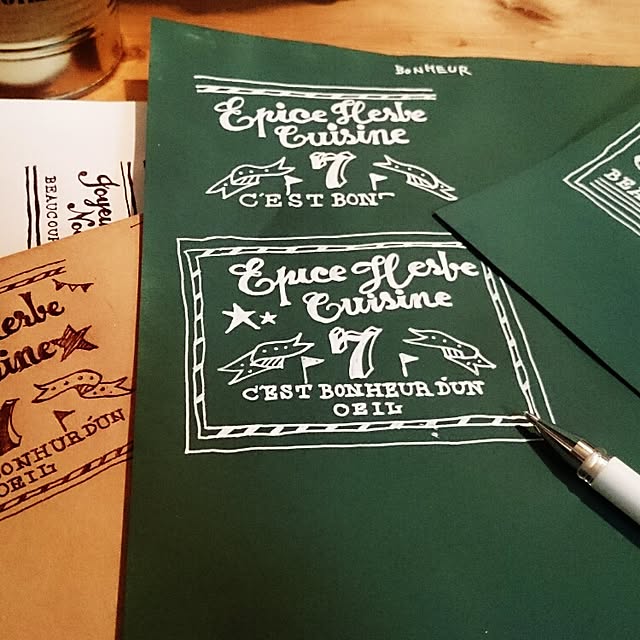 BONHEUR
Epice Herbe
Cuisine
7
C'EST BON
Epice Herbe
Cuisine
7
C'EST BONHEUR D'UN
OEIL
Joyeu
No
BEAUCOUP
erbe
sine
7
BONHURD'UN
OEIL
BEA